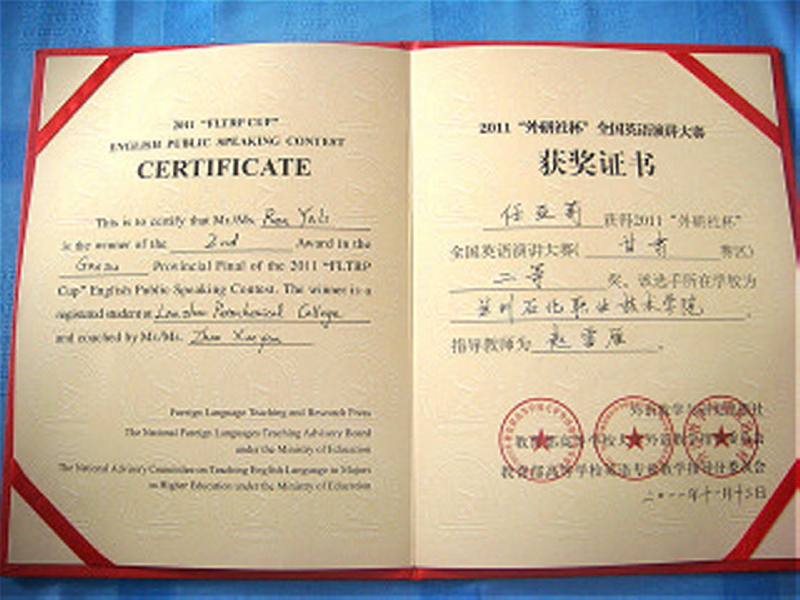 2011 "FLTRP CUP"
ENGLISH PUBLIC SPEAKING CONTEST
CERTIFICATE
This is to certify that Mr./Ms. Ren Yali
is the winner of the 2nd Award in the
Gansu Provincial Final of the 2011 "FLTRP
Cup" English Public Speaking Contest. The winner is a
registered student at Lanzhou Petrochemical College
and coached by Mr./Ms. Zhao
Foreign Language Teaching and Research Press
The National Foreign Languages Teaching Advisory Board
under the Ministry of Education
The National Advisory Committee on Teaching English Language to Majors
in Higher Education under the Ministry of Education
2011 "外研社杯" 全国英语演讲大赛
获奖证书
任亚莉 获得2011 "外研社杯"
全国英语演讲大赛( 甘肃 赛区)
二等 奖。该选手所在学校为
兰州石化职业技术学院 。
指导教师为 赵雪雁 。
外语教学与研究出版社
教育部高等学校大学外语教学指导委员会
教育部高等学校英语专业教学指导分委员会
二〇一一年十一月十三日